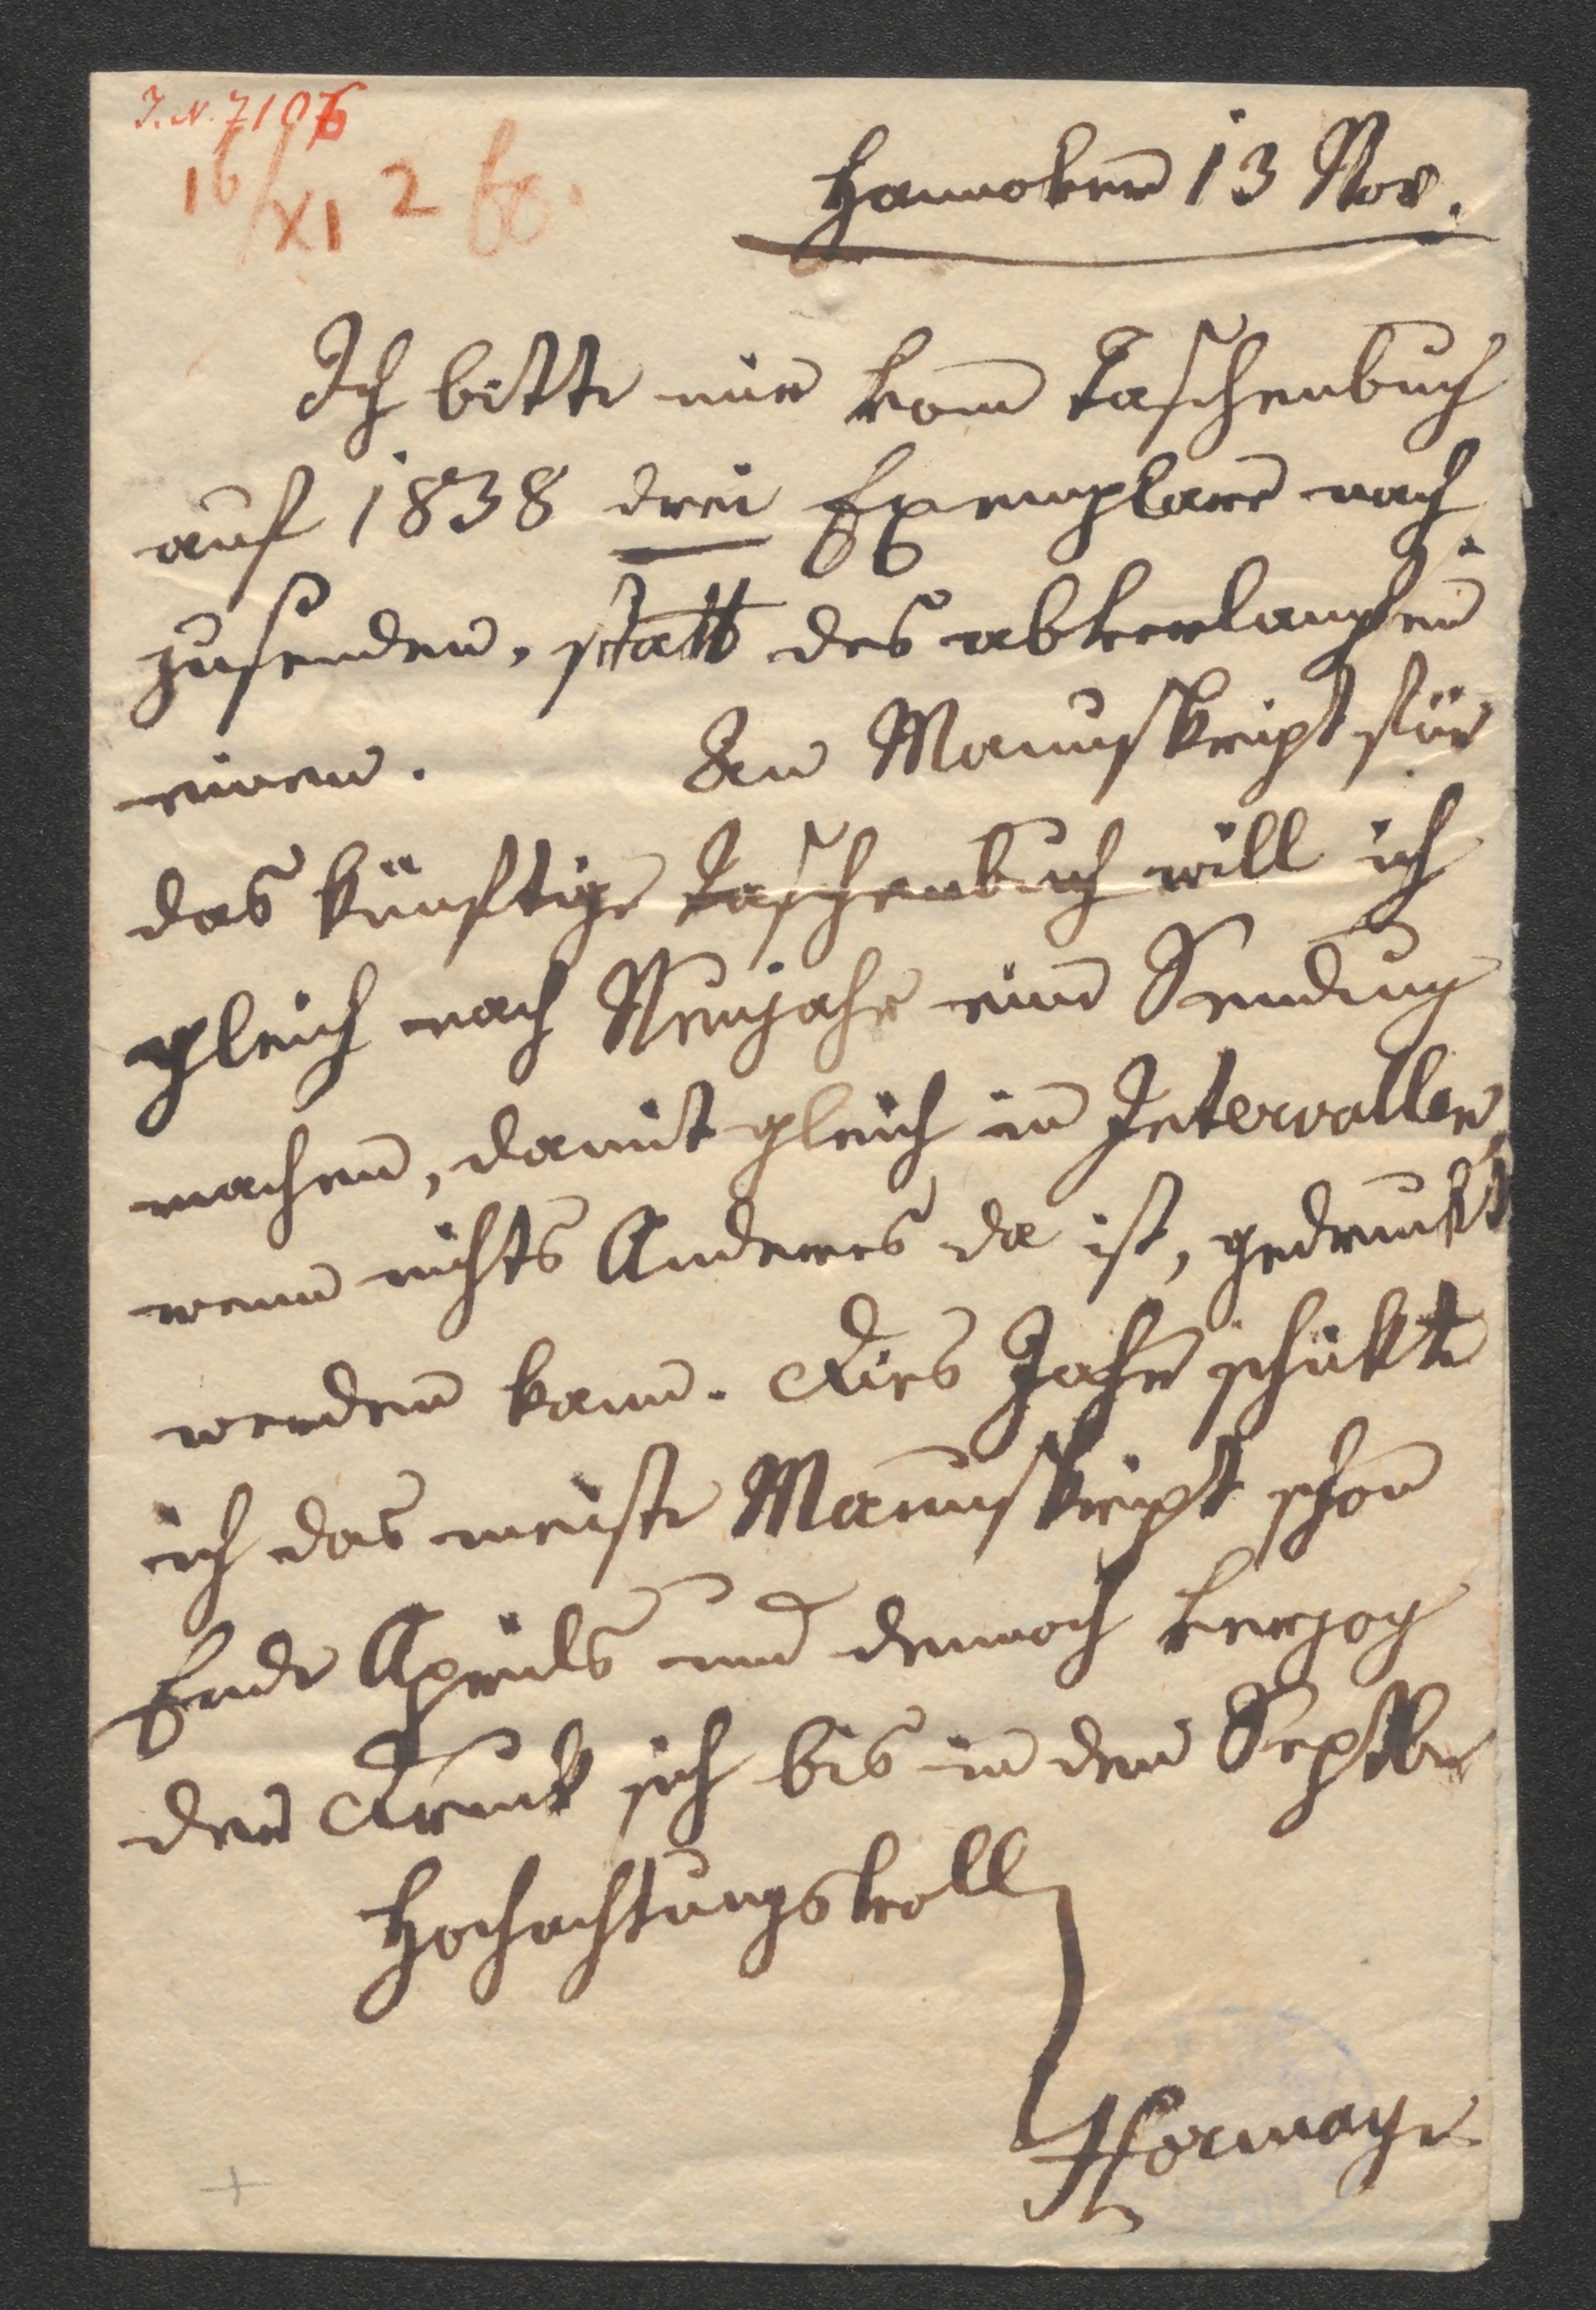 J. N. 7106
16/XI 2
Hannover 13 Nov.
Ich bitte mir vom Taschenbuch
auf 1838 drei Exemplare nach
zusenden, statt des abverlangten
einen. An Manuskript für
das künftige Taschenbuch will ich
gleich nach Neujahr eine Sendung
machen, damit gleich in Intervallen,
wenn nichts Anderes da ist, gedrukt
werden kann. Dies Jahr schikte
ich das meiste Manuskript schon
Ende Aprils und dennoch verzog
der Druk sich bis in den Septbr
Hochachtungsvoll
Hormayr